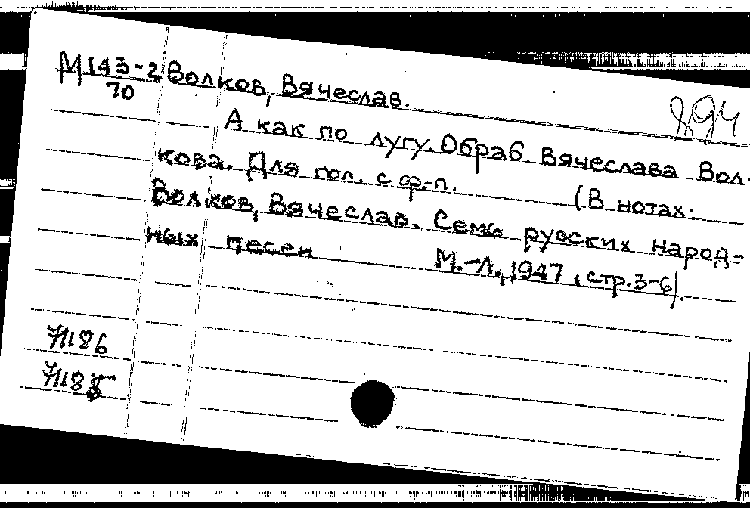 М143-2 Волков, Вячеслав.
70
894
А как по лугу. Обраб. Вячеслава Вол-
кова. Для гол. с ф-п. (В нотах:
Волков, Вячеслав. Семь русских народ-
ных песен М.-Л., 1947, стр. 3-6).
71186
7118